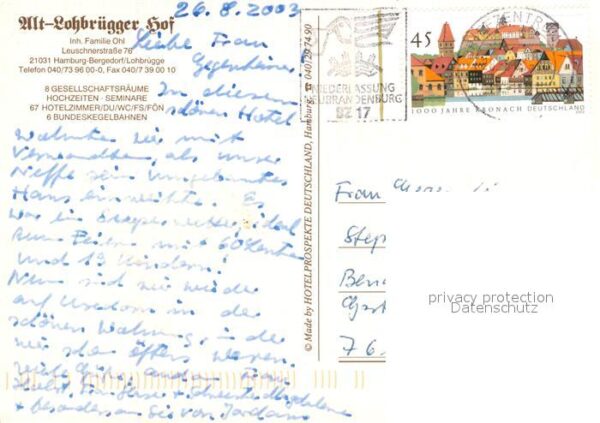 Alt-Lohbrügger Hof
Inh. Familie Ohl
Leuschnerstraße 76
21031 Hamburg-Bergedorf/Lohbrügge
Telefon 040/73 96 00-0, Fax 040/7 39 00 10
8 GESELLSCHAFTSRÄUME
HOCHZEITEN · SEMINARE
67 HOTELZIMMER/DU/WC/FS/FÖN
6 BUNDESKEGELBAHNEN
26.8.2003
Liebe Frau
In diesem
schönen Hotel
wohnten wir mit
Verwandten, als unser
Neffe sein umgebautes
Haus einweihte. Es
war ein ideal
zum Feiern mit 60 Leuten
und 19 Kindern!
Nun sind wir wieder
auf Usedom in der
schönen Wohnung, in der
wir schon öfters waren.
© Made by HOTELPROSPEKTE DEUTSCHLAND, Hamburg, ☎ 040/29 74 90
BRIEFZENTRUM
NIEDERLASSUNG
NEUBRANDENBURG
BZ 17
45
1000 JAHRE KRONACH DEUTSCHLAND
Frau
Step
7 6
privacy protection
Datenschutz